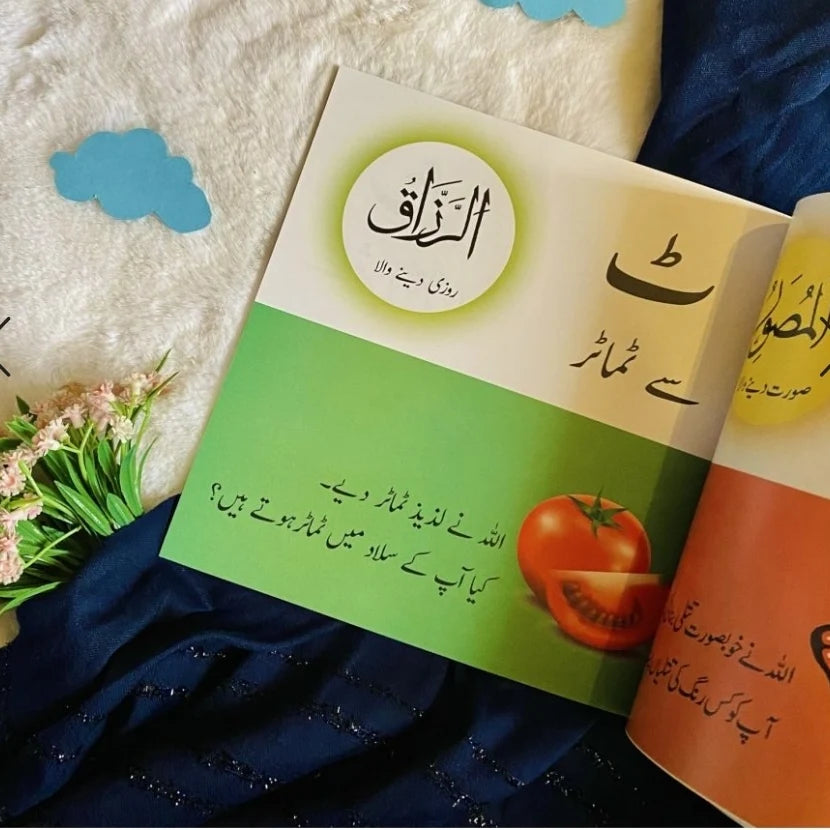 الرَّزَّاقُ
روزی دینے والا
ٹ
سے ٹماٹر
اللہ نے لذیذ ٹماٹر دیے۔
کیا آپ کے سلاد میں ٹماٹر ہوتے ہیں؟
صورت دینے
اللہ نے خوبصورت تتلی
آپ کو کس رنگ کی تتلیاں